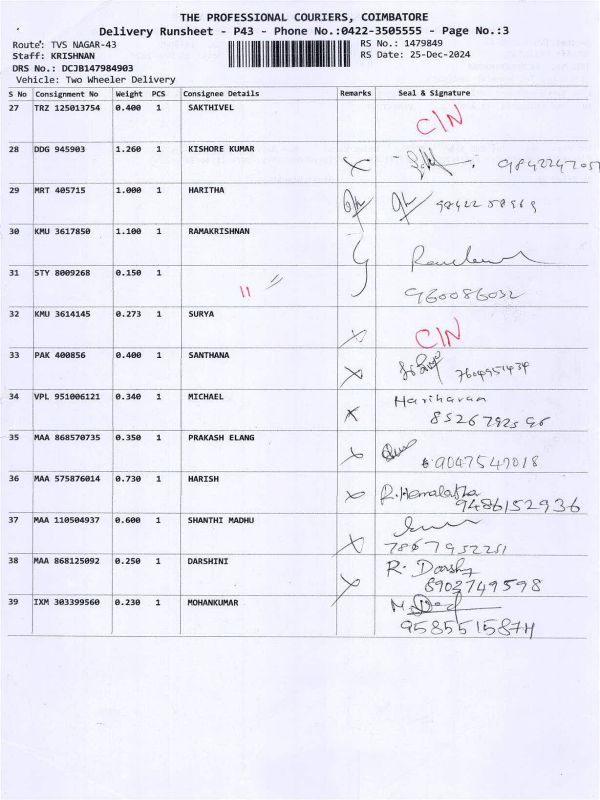 THE PROFESSIONAL COURIERS, COIMBATORE
Delivery Runsheet - P43 - Phone No.:0422-3505555 - Page No.:3
Route: TVS NAGAR-43 RS No.: 1479849
Staff: KRISHNAN RS Date: 25-Dec-2024
DRS No.: DCJB147984903
Vehicle: Two Wheeler Delivery
S No Consignment No Weight PCS Consignee Details Remarks Seal & Signature
27 TRZ 125013754 0.400 1 SAKTHIVEL
C/N
28 DDG 945903 1.260 1 KISHORE KUMAR
29 MRT 405715 1.000 1 HARITHA
30 KMU 3617850 1.100 1 RAMAKRISHNAN
31 STY 8009268 0.150 1
960086032
32 KMU 3614145 0.273 1 SURYA
C/N
33 PAK 400856 0.400 1 SANTHANA
7604951434
34 VPL 951006121 0.340 1 MICHAEL
Hariharan
35 MAA 868570735 0.350 1 PRAKASH ELANG
9047547018
36 MAA 575876014 0.730 1 HARISH
R. Hemalatha
9486152936
37 MAA 110504937 0.600 1 SHANTHI MADHU
7867952251
38 MAA 868125092 0.250 1 DARSHINI
R. Darshy
8903749598
39 IXM 303399560 0.230 1 MOHANKUMAR
9585515874